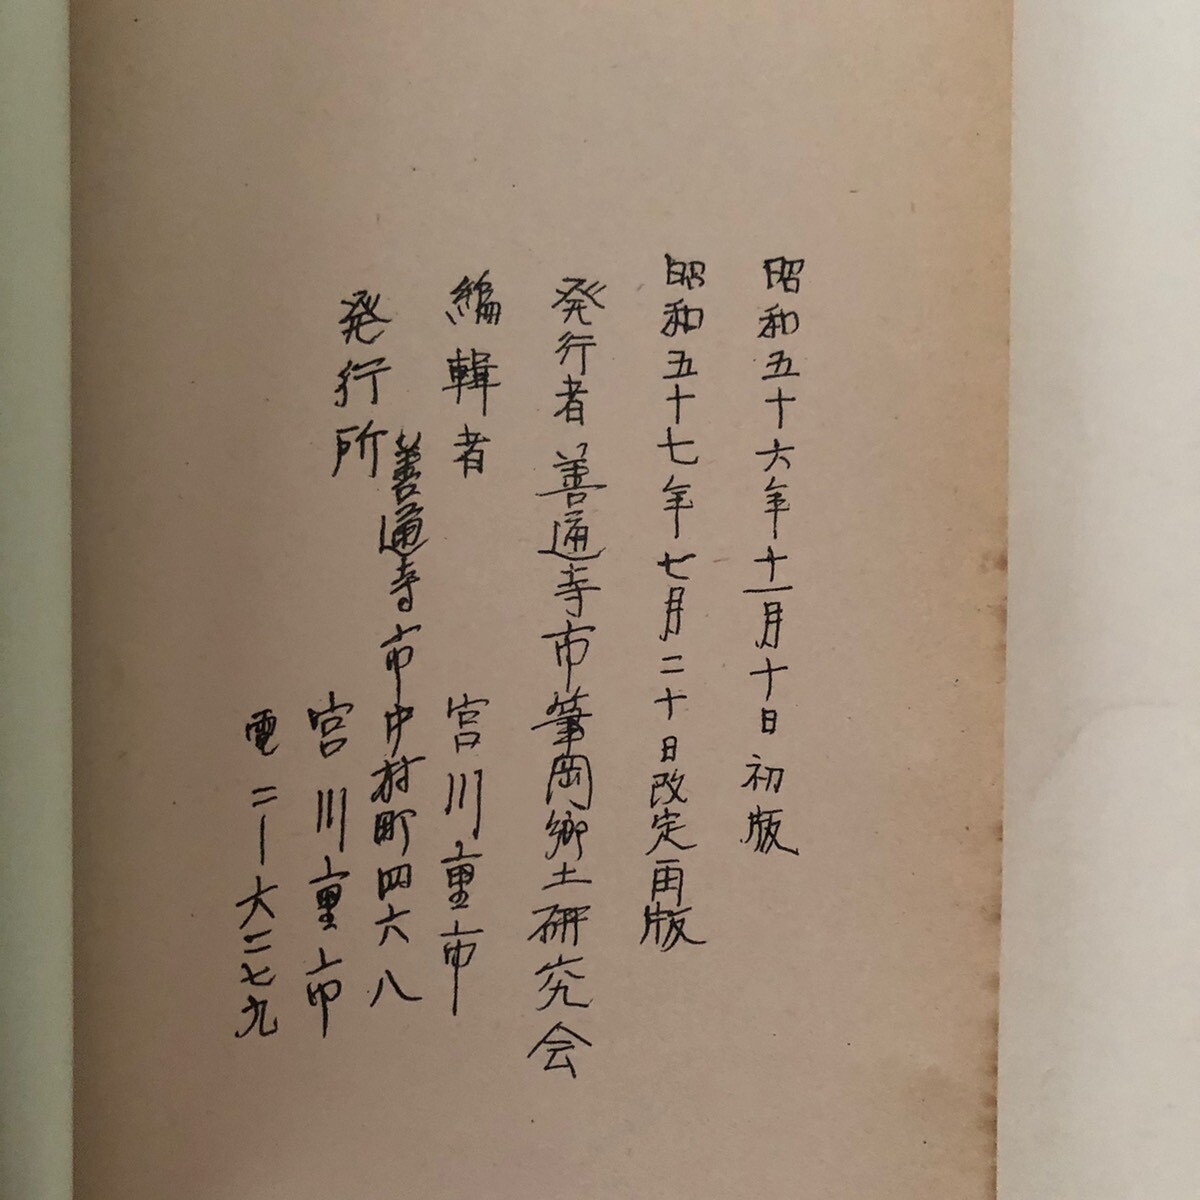 昭和五十六年十一月十日初版
昭和五十七年七月二十日改定再版
発行者善通寺市筆岡郷土研究会
編輯者 宮川重市
発行所 善通寺市中村町四六八
宮川重市
電二ー六二七九